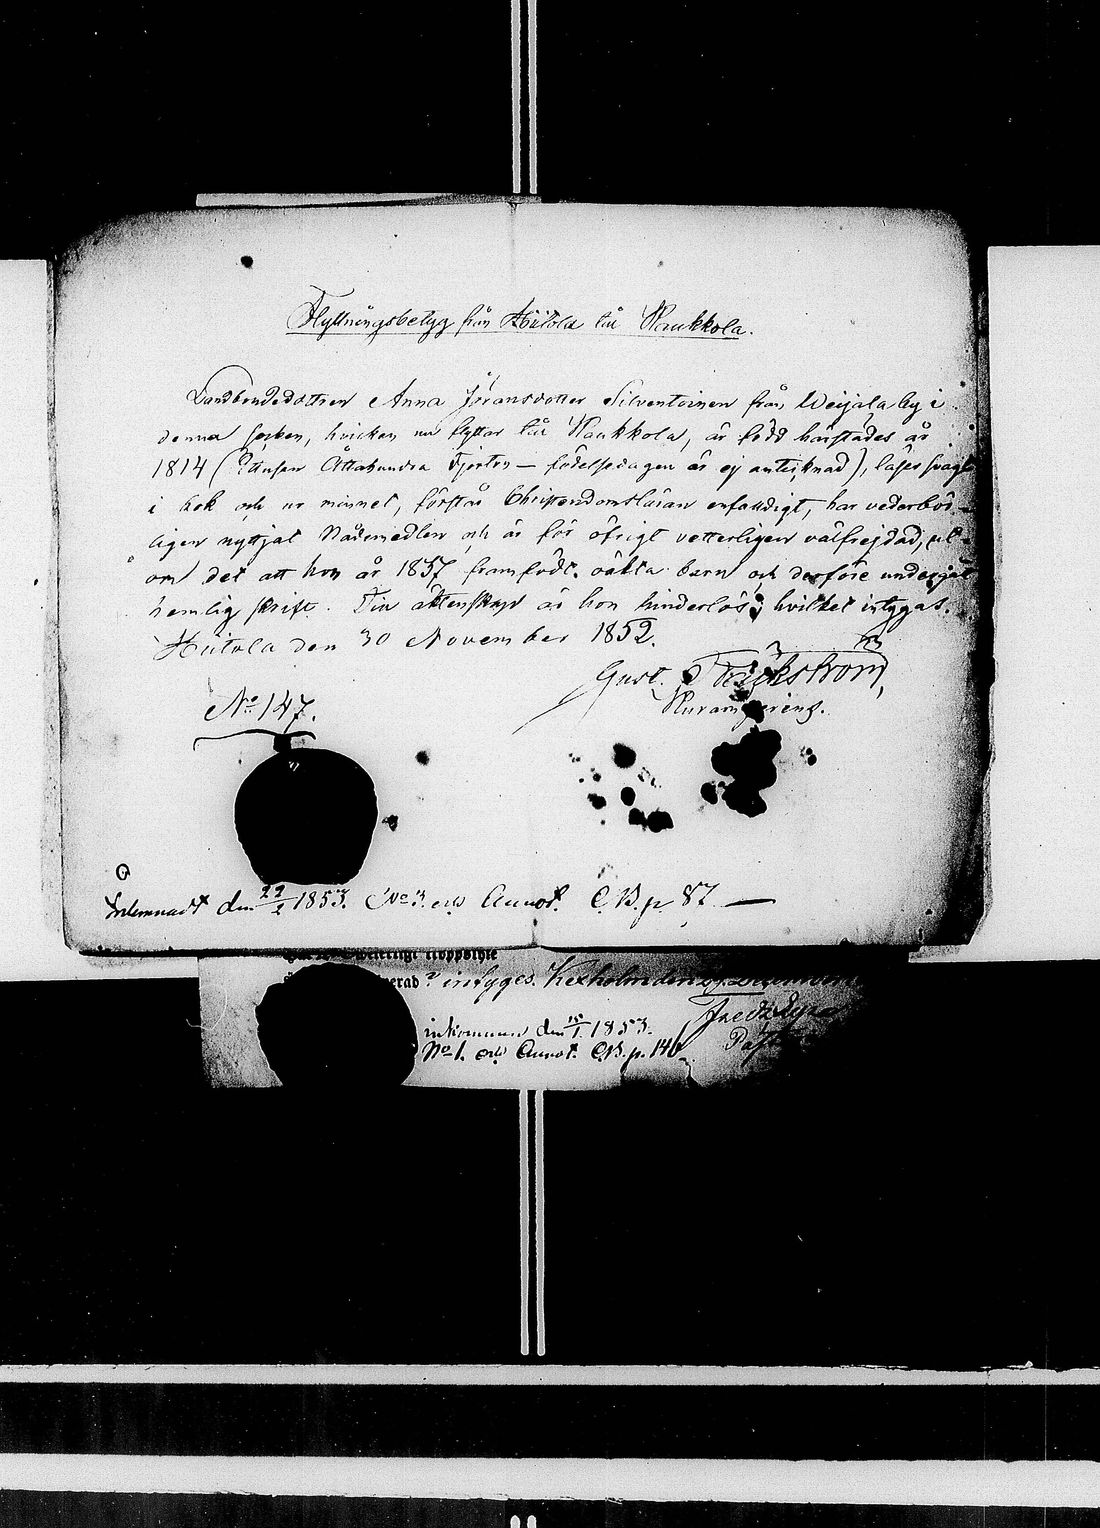 Flyttningsbetyg från Hiitola till Kaukkola.
Landbondedottren Anna Jöransdotter Silventoinen från Weijala by i
denna socken, hvilken nu flyttar till Kaukkola, är född härstädes år
1814 (Ettusen Åttahundra Fjorton — födelsedagen är ej antecknad), läser svagt
i bok och ur minnet, förstår Christendomsläran enfaldigt, har vederbör-
ligen nyttjat Nådemedlen och är för öfrigt vetterligen välfrejdad, ut-
om det att hon år 1837 framfödt oäkta barn och derföre undergått
hemlig skrift. Till äktenskap är hon hinderlös; hvilket intygas.
Hiitola den 30 November 1852.
Gust.
No 147.
Inlemnadt den 22/2 1853. No 3. och Annot. C.B. p. 87 —
intyges. Kexholm den
Fredr.
inkommen den 15/1 1853.
No 1. och Annot. C.B. p. 140